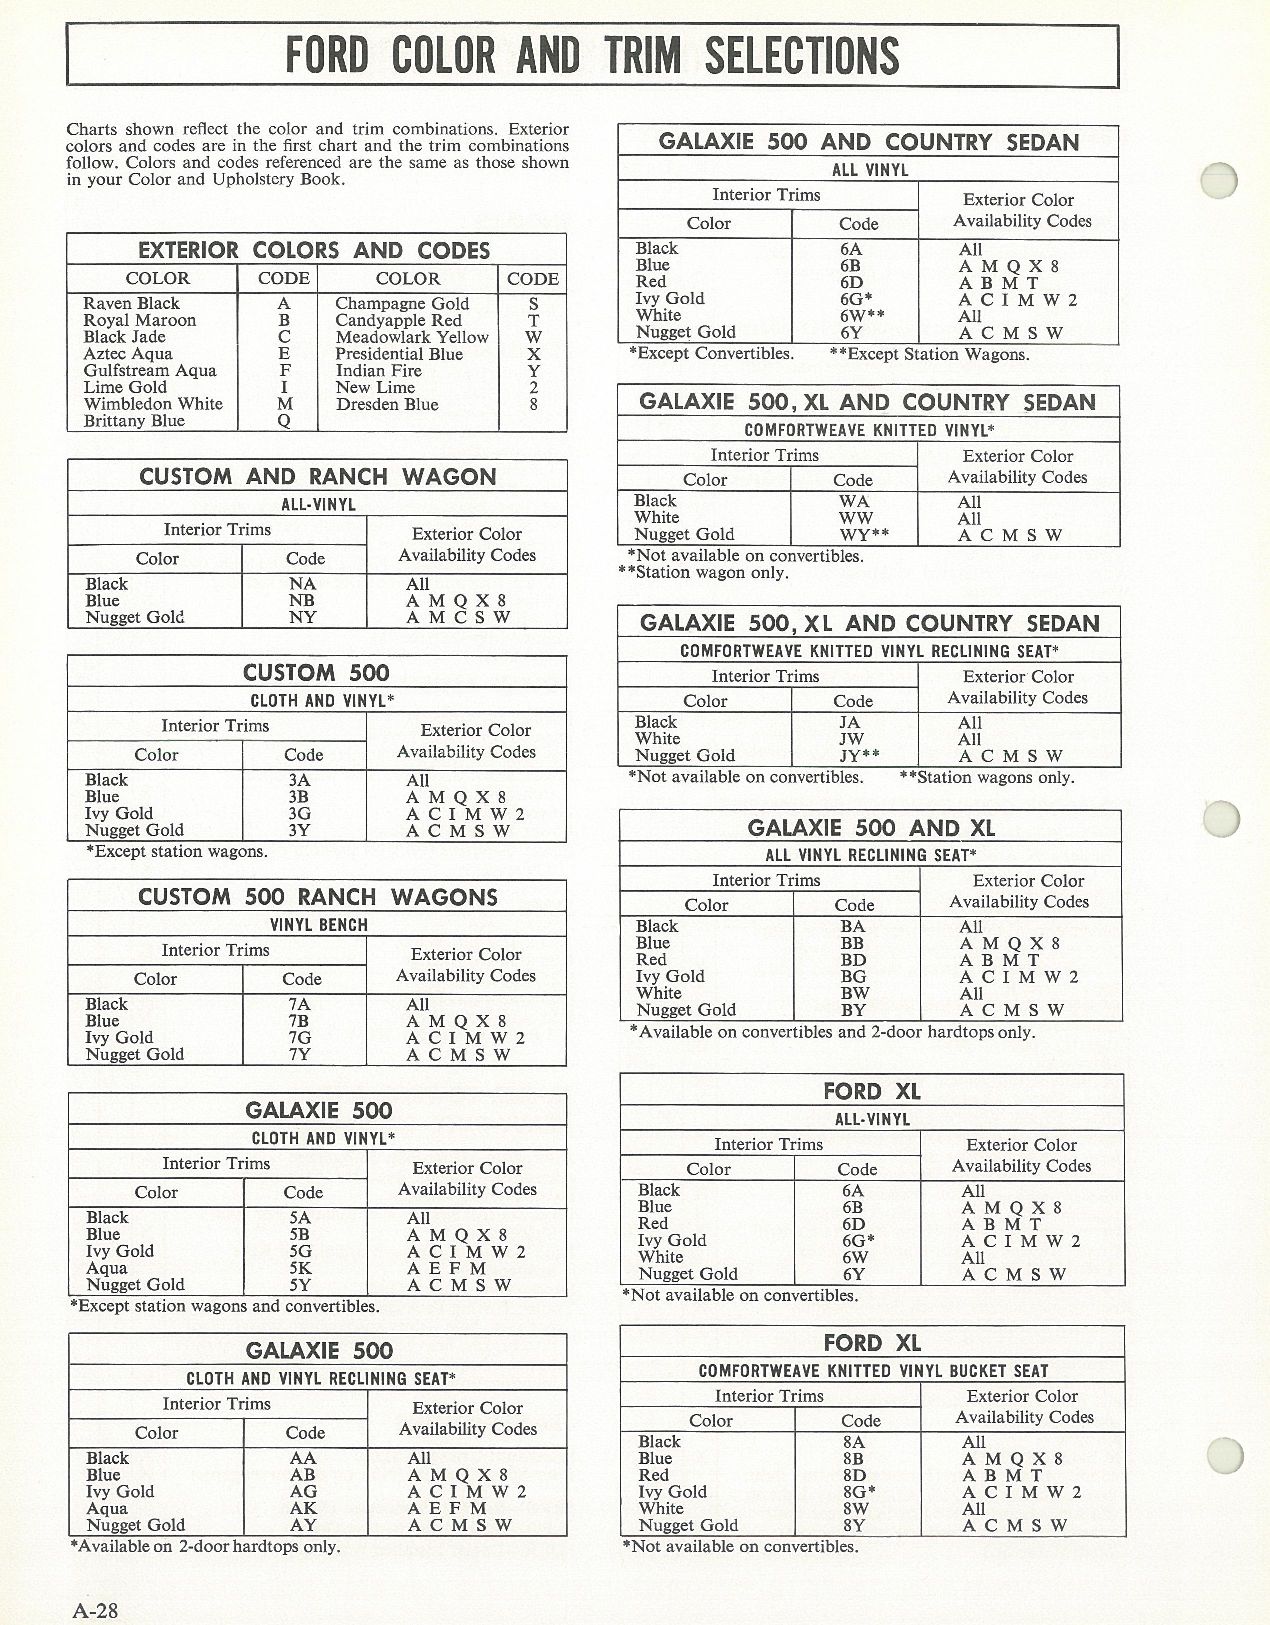 FORD COLOR AND TRIM SELECTIONS
Charts shown reflect the color and trim combinations. Exterior
colors and codes are in the first chart and the trim combinations
follow. Colors and codes referenced are the same as those shown
in your Color and Upholstery Book.
EXTERIOR COLORS AND CODES
COLOR CODE COLOR CODE
Raven Black A Champagne Gold S
Royal Maroon B Candyapple Red T
Black Jade C Meadowlark Yellow W
Aztec Aqua E Presidential Blue X
Gulfstream Aqua F Indian Fire Y
Lime Gold I New Lime 2
Wimbledon White M Dresden Blue 8
Brittany Blue Q
CUSTOM AND RANCH WAGON
ALL-VINYL
Interior Trims Exterior Color
Color Code Availability Codes
Black NA All
Blue NB A M Q X 8
Nugget Gold NY A M C S W
CUSTOM 500
CLOTH AND VINYL*
Interior Trims Exterior Color
Color Code Availability Codes
Black 3A All
Blue 3B A M Q X 8
Ivy Gold 3G A C I M W 2
Nugget Gold 3Y A C M S W
*Except station wagons.
CUSTOM 500 RANCH WAGONS
VINYL BENCH
Interior Trims Exterior Color
Color Code Availability Codes
Black 7A All
Blue 7B A M Q X 8
Ivy Gold 7G A C I M W 2
Nugget Gold 7Y A C M S W
GALAXIE 500
CLOTH AND VINYL*
Interior Trims Exterior Color
Color Code Availability Codes
Black 5A All
Blue 5B A M Q X 8
Ivy Gold 5G A C I M W 2
Aqua 5K A E F M
Nugget Gold 5Y A C M S W
*Except station wagons and convertibles.
GALAXIE 500
CLOTH AND VINYL RECLINING SEAT*
Interior Trims Exterior Color
Color Code Availability Codes
Black AA All
Blue AB A M Q X 8
Ivy Gold AG A C I M W 2
Aqua AK A E F M
Nugget Gold AY A C M S W
*Available on 2-door hardtops only.
A-28
GALAXIE 500 AND COUNTRY SEDAN
ALL VINYL
Interior Trims Exterior Color
Color Code Availability Codes
Black 6A All
Blue 6B A M Q X 8
Red 6D A B M T
Ivy Gold 6G* A C I M W 2
White 6W** All
Nugget Gold 6Y A C M S W
*Except Convertibles. **Except Station Wagons.
GALAXIE 500, XL AND COUNTRY SEDAN
COMFORTWEAVE KNITTED VINYL*
Interior Trims Exterior Color
Color Code Availability Codes
Black WA All
White WW All
Nugget Gold WY** A C M S W
*Not available on convertibles.
**Station wagon only.
GALAXIE 500, XL AND COUNTRY SEDAN
COMFORTWEAVE KNITTED VINYL RECLINING SEAT*
Interior Trims Exterior Color
Color Code Availability Codes
Black JA All
White JW All
Nugget Gold JY** A C M S W
*Not available on convertibles. **Station wagons only.
GALAXIE 500 AND XL
ALL VINYL RECLINING SEAT*
Interior Trims Exterior Color
Color Code Availability Codes
Black BA All
Blue BB A M Q X 8
Red BD A B M T
Ivy Gold BG A C I M W 2
White BW All
Nugget Gold BY A C M S W
*Available on convertibles and 2-door hardtops only.
FORD XL
ALL-VINYL
Interior Trims Exterior Color
Color Code Availability Codes
Black 6A All
Blue 6B A M Q X 8
Red 6D A B M T
Ivy Gold 6G* A C I M W 2
White 6W All
Nugget Gold 6Y A C M S W
*Not available on convertibles.
FORD XL
COMFORTWEAVE KNITTED VINYL BUCKET SEAT
Interior Trims Exterior Color
Color Code Availability Codes
Black 8A All
Blue 8B A M Q X 8
Red 8D A B M T
Ivy Gold 8G* A C I M W 2
White 8W All
Nugget Gold 8Y A C M S W
*Not available on convertibles.